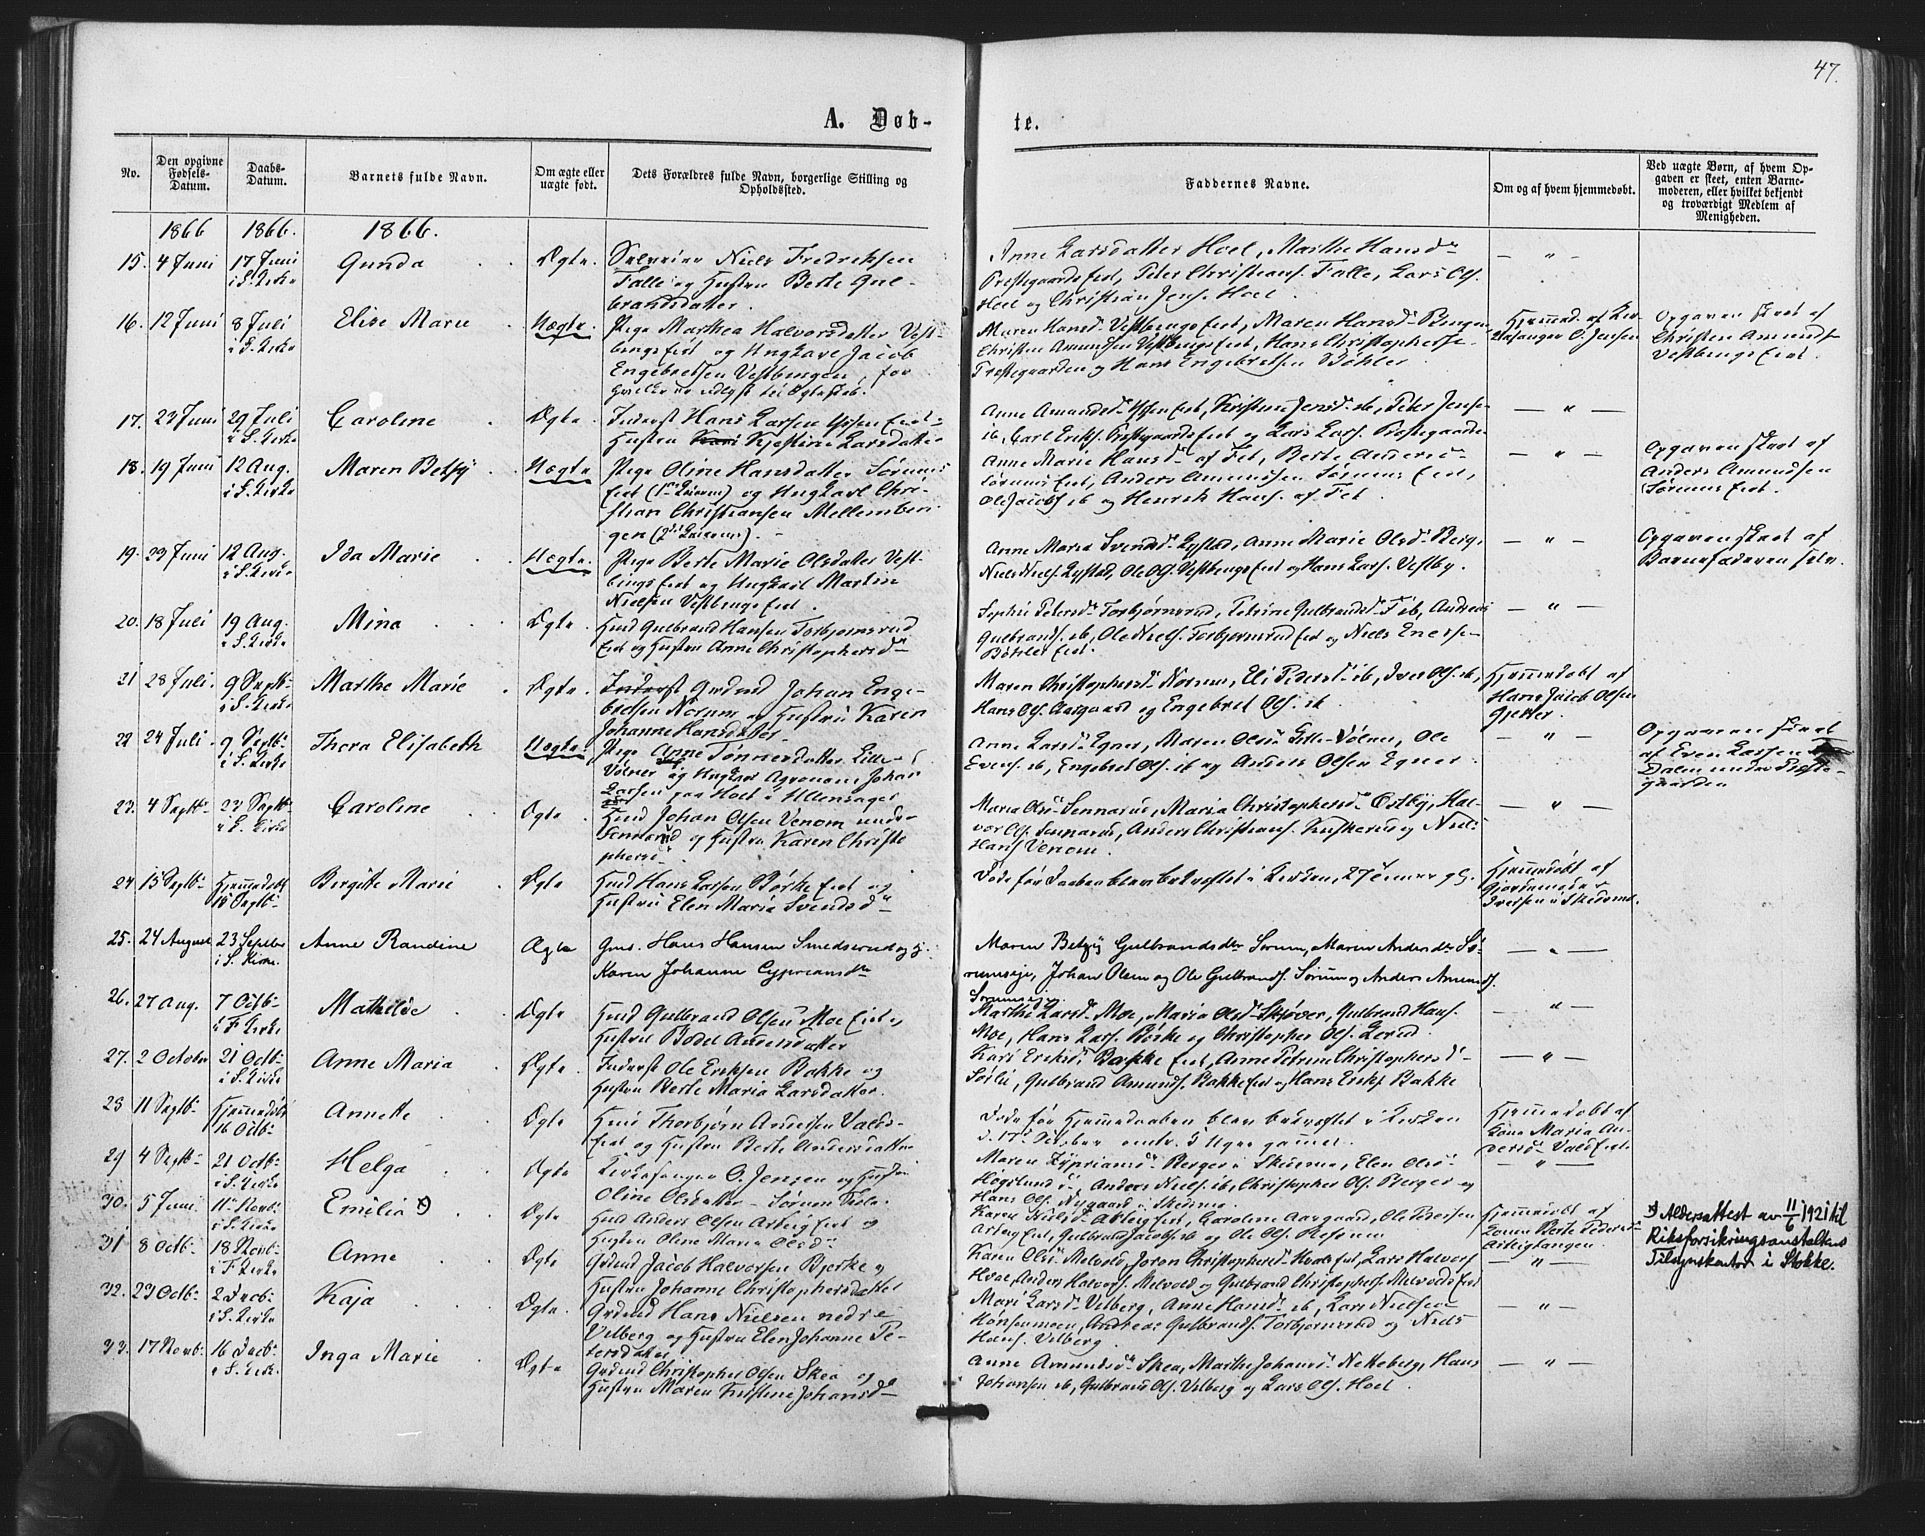 47.
A. Døb-
te.
No.
Den opgivne Fødsels-Datum.
Daabs-Datum.
Barnets fulde Navn.
Om ægte eller uægte født.
Dets Forældres fulde Navn, borgerlige Stilling og Opholdssted.
Faddernes Navne.
Om og af hvem hjemmedøbt.
Ved uægte Børn, af hvem Opgaven er skeet, enten Barnemoderen, eller hvilket bekjendt og troværdigt Medlem af Menigheden.
1866 1866. 1866.
15. 4 Juni 17 Juni Gunda Ægte Niels Fredriksen
i S. Kirke
Falle og Hustru Berte Gul-
brandsdatter.
Anne Larsdatter Hoel, Marthe Hansd
Prestegaardseiet, Peter Christians. Falle, Lars Ols.
Hoel og Christian Jens. Hoel.
16. 12 Juni 8 Juli Elise Marie Uægte. Pige Marthea Halvorsdatter Vest-
i S. Kirke
bingseiet og Ungkarl Jacob
Engebretsen Vestbingen, for
Maren Hansd Vestbingseiet, Maren Hansd Bingen
Christen Amundsen Vestbingseiet, Hans Christopherse
Prestegaarden og Hans Engebretsen Bøhler
Hjemmed. af Kir-
kesanger O. Jensen
Opgaven skeet af
Christen Amunds
Vestbingseiet.
17. 23 Juni 29 Juli Caroline Ægte Inderst Hans Larsen
i S. Kirke
Hustru Kjerstine Larsdatter
Anne Amundsd Kirstine Jensd ib, Peter Jensen
ib, Carl Eriks. Prestegaardseiet og Lars Lars. Prestegaarden
18. 19 Juni 12 Aug. Maren Betsy Uægte Pige Oline Hansdatter Sørums
i S. Kirke
eiet og Ungkarl Chri-
stian Christiansen Mellembin
gen
Anne Marie Hansd af Fet, Berte Andersd
Sørumseiet, Anders Amundsen Sørumseiet,
Ole Jacobs ib og Henrik Hans. af Fet.
Opgaven skeet af
Anders Amundsen
Sørumseiet.
19. 23 Juni 12 Aug. Ida Marie Uægte. Pige Berte Marie Olsdatter Vest-
i S. Kirke
bingseiet og Ungkarl Martin
Nielsen Vestbingseiet.
Anne Maria Svendsd Lystad, Anne Marie Olsd Berg,
Niels Niels. Lystad, Ole Ols. Vestbingseiet og Hans Lars. Vestby.
Opgaven skeet af
Barnefaderen selv.
20. 18 Juli 19 Aug. Mina Ægte. Husm Gulbrand Hansen Torbjørnsrud
i S. Kirke
eiet og Hustru Anne Christophersd
Sophie Petersd Torbjørnsrud, Petrine Gulbrandsd Fib, Andreas
Gulbrands. ib, Ole Niels. Torbjørnsrud eiet og Niels Enersen
Bøhlereiet.
21 28 Juli. 9 Septb Marthe Marie Ægte. Inderst Grdmd Johan Enge-
i S. Kirke
bretsen Norum og Hustru Karen
Johanne Hansdatter
Maren Christophersd Norum, Eli Pedersd ib, Iver Ols. ib,
Hans Ols. Aargaard og Engebret Ols. ib
Hjemmedøbt af
Hans Jacob Olsen
22 24 Juli. 9 Septb Thora Elisabeth Uægte Pige Anne Tønnesdatter Lille-
i S. Kirke
Vølner og Ungkarl Agronom Johan
Larsen paa Hoel i Ullensager
Anne Larsd Egner, Maren Olsd Lille-Vølner, Ole
Evens. ib, Engebret Ols. ib og Anders Olsen Egner.
Opgaven skeet
af Even Larsen
Dalen under Preste-
gaarden
23. 4 Septb 23 Septb Caroline Ægte Husm Johan Olsen Venom under
i S. Kirke
Sennerud og Hustru Karen Christo
phersd
Maria Olsd Sennerud, Maria Christophersd Østby, Hal-
vor Ols. Sennerud, Anders Christians. Kuskerud og Niels
Hans Venom.
24 15 Septb Hjemmedøbt Birgitte Marie Ægte Husm Hans Larsen Børkeeiet og
15 Septb
Hustru Elen Maria Svendsd
Døde før Daaben blev bekræftet i Kirken, 27
Hjemmedøbt af
Gjordemoder
Iversen i Skedsmo.
25. 24 August 23 September Anne Randine Ægte Gmd. Hans Hansen Smedsrud og H.
i S. Kirke.
Karen Johanne Cypriansdtr
Maren Betzy Gulbrandsdtr Sørum, Maren Andersdtr Sø-
rumseje, Johan Olsen og Ole Gulbrands. Sørum og Anders Amunds.
Sørumseje.
26. 27 Aug. 7 Octb Mathilde Ægte Husm Gulbrand Olsen Moeeiet og
i F. Kirke
Hustru Bodel Andersdatter
Marthe Larsd Moe, Maria Olsd Skjøver, Gulbrand Hans.
Moe, Hans Lars. Børke og Christopher Ols. Lerud.
27. 2 October 21 Octb Anne Maria Ægte Inderst Ole Eriksen Bakke og
i S. Kirke
Hustru Berte Maria Larsdatter.
Kari Eriksd Bakkeeiet, Anne Petrine Christophersd
Sørli, Gulbrand Amunds. Bakkeeiet og Hans Eriks Bakke
28 11 Septb Hjemmedøbt Annette Ægte Husm Thorbjørn Andersen Valds-
16 Octb
eiet og Hustru Berte Andersdatter
Døde før Hjemmedaaben blev bekræftet i Kirken
d. 17 October omtr. 5 Uger gammel.
Hjemmedøbt af
Kone Maria An-
dersd Valdseiet
29 4 Septb 21 Octb Helga Ægte Kirkesanger O. Jensen og Hustru
i S. Kirke
Oline Olsdatter Sørum
Maren Zypriansd Berger i Skedsmo, Elen Olsd
Høgslund, Anders Niels. ib, Christopher Ols. Berger og
Hans Ols. Nygaard i Skedsmo
30. 5 Juni 11 Novb Emilia Ægte Husm Anders Olsen Asbergeiet og
i S. Kirke
Hustru Oline Maria Olsd
Karen Nielsd Asbergeiet, Caroline Aargaard, Ole Pedersen
Asbergeiet, Gulbrand Jacobs. ib og Ole Ols. Refsum
Hjemmedøbt af
Konen Berte Pedersd
Asbergtangen
x) Aldersattest av 11/6 1921 til
Riksforsikringsanstaltens
Tilsynskontor i Stokke.
31 8 Octb 18 Novb Anne Ægte Grdmd Jacob Halvorsen Bjerke og
i F. Kirke
Hustru Johanne Christophersdatter
Karen Olsd Melvold, Joran Christophersd Hvaleiet, Lars Halvors
Hvoe, Anders Halvors. Melvold og Gulbrand Christophers. Melvoldseiet
32. 23 Octb 2 Decb Kaja Ægte. Grdmd Hans Nielsen nedre
i S. Kirke
Velberg og Hustru Elen Johanne Pe-
tersdatter
Mari Larsd Velberg, Anne Hansd ib, Lars Nielsen
Hønsemoen, Andreas Gulbrands. Torbjørnsrud og Niels
Hans. Velberg
33. 17 Novb 16 Decb Inga Marie Ægte Grdmd Christopher Olsen Skea og
i S. Kirke.
Hustru Maren Kirstine Johansd
Anne Amundsd Skea, Marthe Johansd Nekkeberg, Hans
Johansen ib, Gulbrand Ols. Velberg og Lars Ols. Hoel.